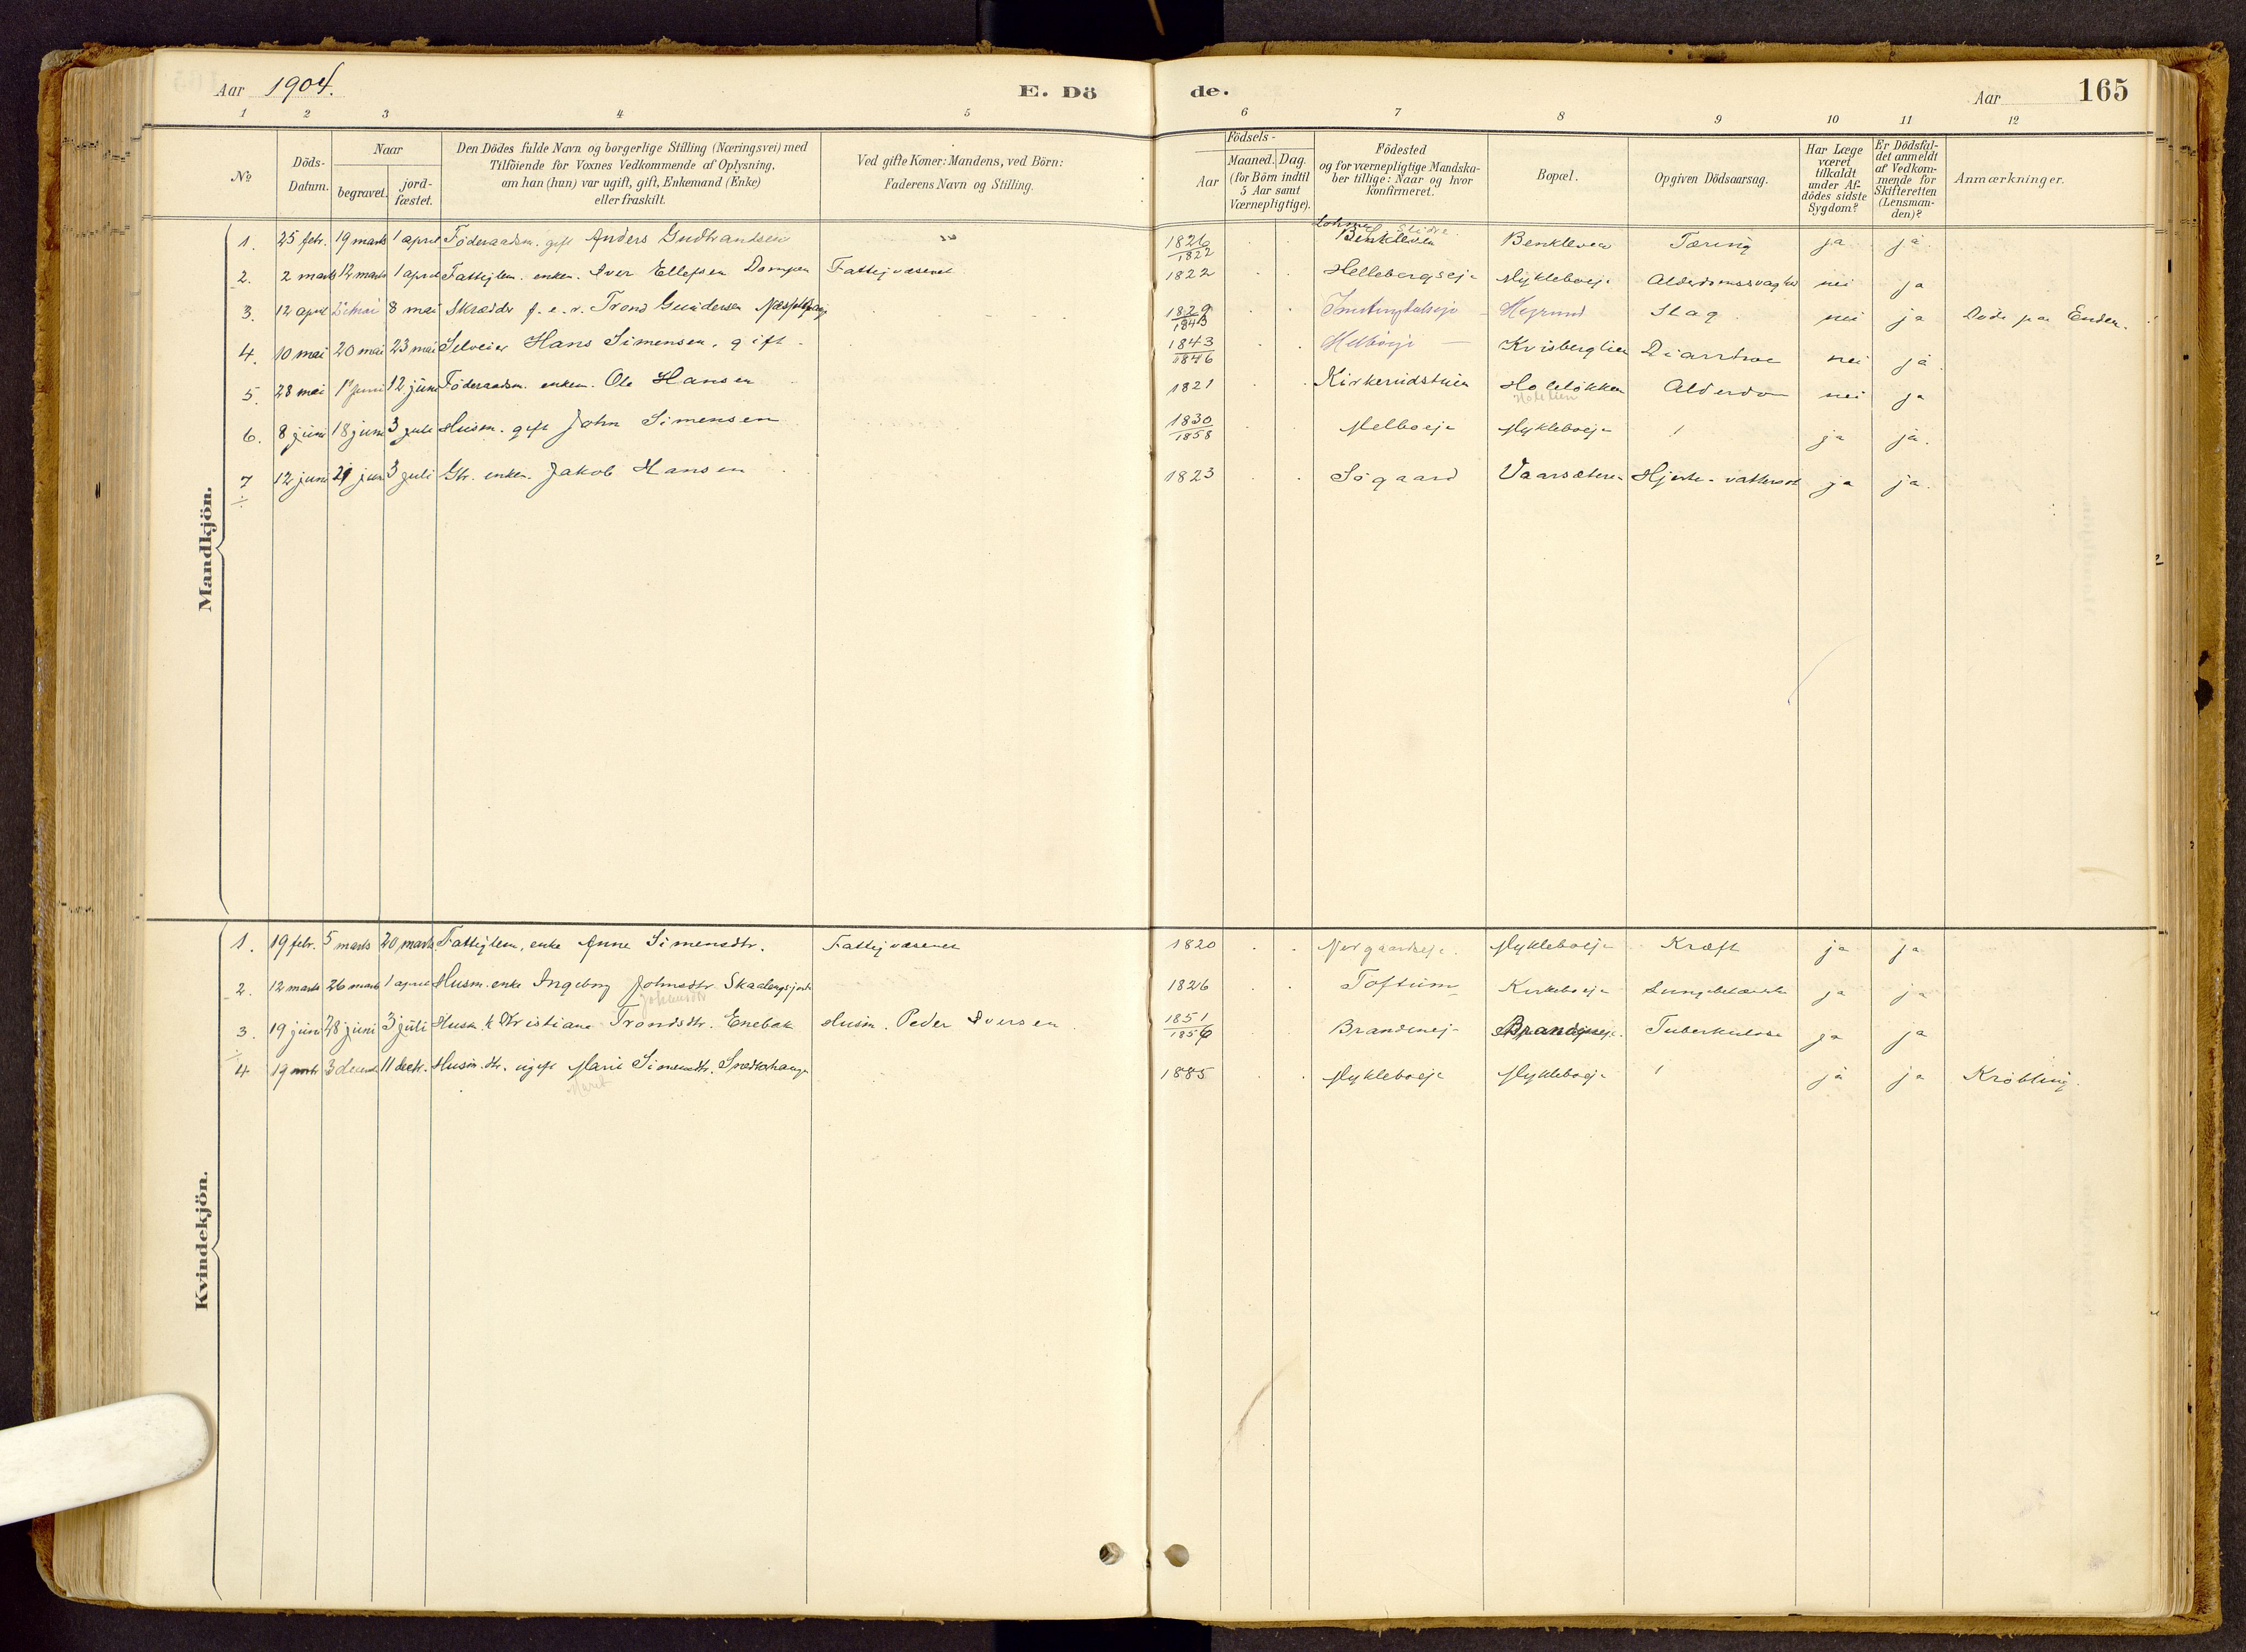 Aar 1904. E. Dö de. Aar 165
1 2 3 4 5 6 7 8 9 10 11 12
No
Döds-Datum.
Naar
begravet.
jord-fæstet.
Den Dödes fulde Navn og borgerlige Stilling (Næringsvei) med
Tilföiende for Voxnes Vedkommende af Oplysning,
om han (hun) var ugift, gift, Enkemand (Enke)
eller fraskilt.
Ved gifte Koner: Mandens, ved Börn:
Faderens Navn og Stilling.
Födsels-
Aar
Maaned. Dag.
(for Börn indtil
5 Aar samt
Værnepligtige).
Födested
og for værnepligtige Mandska-
ber tillige: Naar og hvor
konfirmeret.
Bopæl.
Opgiven Dödsaarsag.
Har Læge
været
tilkaldt
under Af-
dödes sidste
Sygdom?
Er Dödsfal-
det anmeldt
af Vedkom-
mende for
Skifteretten
(Lensman-
den)?
Anmærkninger.
Mandkjön.
1. 25 febr. 19 marts 1 april Föderaadsm. gift Anders Gudbrandsen 1826 1822 Slidre Benkleven Benkleven Tæring ja ja
2. 2 marts 12 marts 1 april Fattiglem. enkem. Iver Ellefsen Dompen Fattigvæsenet 1822 Hellebergseje Mykleboeje Alderdomssvaghed nei ja
3. 12 april mai 8 mai Skrædder f. e. v. Trond Gundersen 1829 1843 Slag nei ja Döde paa Enden.
4. 10 mai 20 mai 23 mai Selveier Hans Simensen, gift 1843 1846 Melboeje Kvisberglien Diarrhoe nei ja
5. 28 mai juni 12 juni Föderaadsm. enkem. Ole Hansen 1821 Kirkerudstuen Holelökken Alderdom nei ja
6. 8 juni 18 juni 3 juli Husm. gift John Simensen 1830 1858 Melboeje Mykleboeje ja ja.
7 12 juni 21 juni 3 juli Gbr. enkem. Jakob Hansen 1823 Sögaard Vaarsæteren Hjerte-vattersot ja ja.
Kvindekjön.
1. 19 febr. 5 marts 20 marts Fattiglem, enke Anne Simensdtr. Fattigvæsenet 1820 Norgaardseje. Mykleboeje Kræft ja ja
2. 12 marts 26 marts 1 april Husm. enke Ingeborg Johnsdtr. 1826 Toftum Kirkeboeje Lungebetændelse ja ja
Johansdtr
3. 19 juni 28 juni 3 juli Husm. k Kristiane Trondsdtr. Enebak Husm. Peder Iversen 1851 1856 Brandeneje Tuberkulose ja ja
4 19 3 decemb. 11 decbr. Husm. dtr. ugift Marie Simensdtr. 1885 Mykleboeje Mykleboeje ja ja Kröbling.
Marit